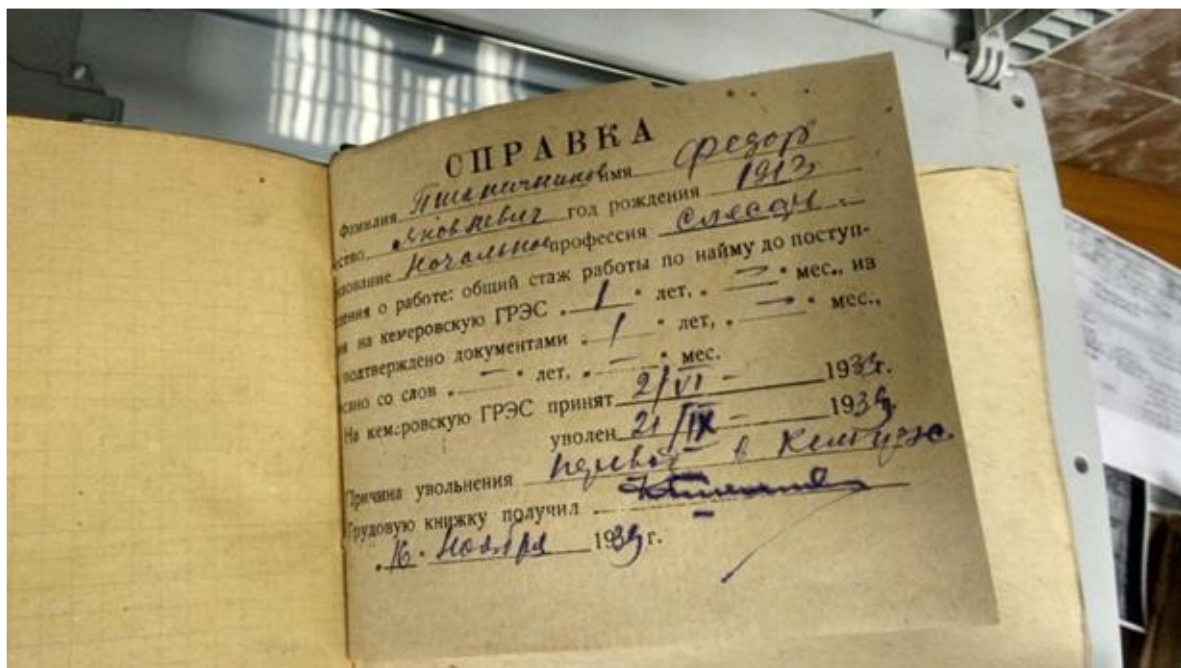 СПРАВКА
Фамилия Пшеничников имя Федор
ество Яковлевич год рождения 1913
зование Начальное профессия слесарь
дения о работе: общий стаж работы по найму до поступ-
ия на кемеровскую ГРЭС „ 1 “ лет, „ — “ мес., из
подтверждено документами „ 1 “ лет, „ — “ мес.,
исано со слов „ — “ лет, „ — “ мес.
На кемеровскую ГРЭС принят 21/VI — 1939г.
уволен 21/IX — 1939г.
Причина увольнения перевод в
Трудовую книжку получил
„16“ Ноября 1939 г.